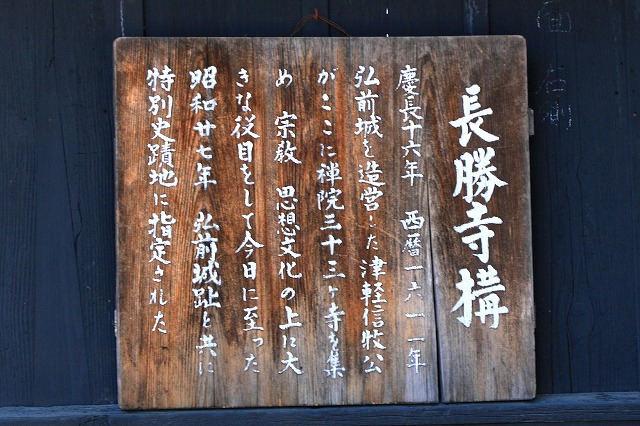 長勝寺構
慶長十六年 西暦一六一一年
弘前城を造営した津軽信牧公
がここに禅院三十三ヶ寺を集
め 宗教 思想文化の上に大
きな役目をして今日に至った
昭和廿七年 弘前城趾と共に
特別史蹟地に指定された